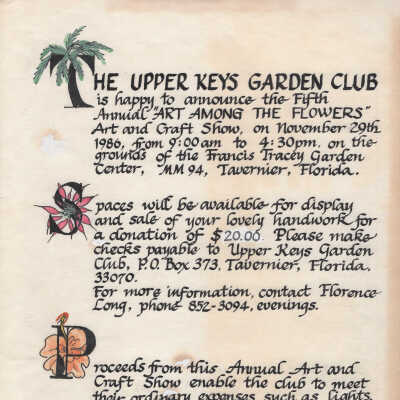 THE UPPER KEYS GARDEN CLUB
is happy to announce the Fifth
Annual "ART AMONG THE FLOWERS"
Art and Craft Show, on November 29th
1986, from 9:00 am to 4:30pm, on the
grounds of the Francis Tracey Garden
Center, MM 94, Tavernier, Florida.
Spaces will be available for display
and sale of your lovely handwork for
a donation of $20.00. Please make
checks payable to Upper Keys Garden
Club, P.O. Box 373, Tavernier, Florida.
33070.
For more information, contact Florence
Long, phone 852-3094, evenings.
Proceeds from this Annual Art and
Craft Show enable the club to meet
their ordinary expenses such as lights,